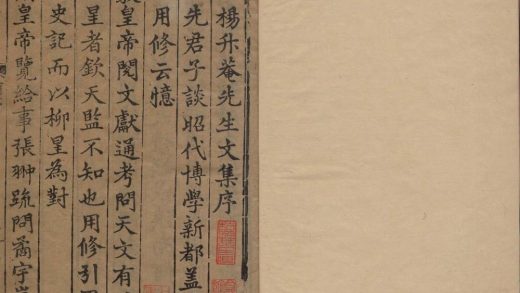 楊升菴先生文集序
先君子談昭代博學新都蓋
用修云憶
皇帝閱文獻通考問天文有
星者欽天監不知也用修引
史記而以柳星為對
皇帝覽給事張翀疏問喬宇